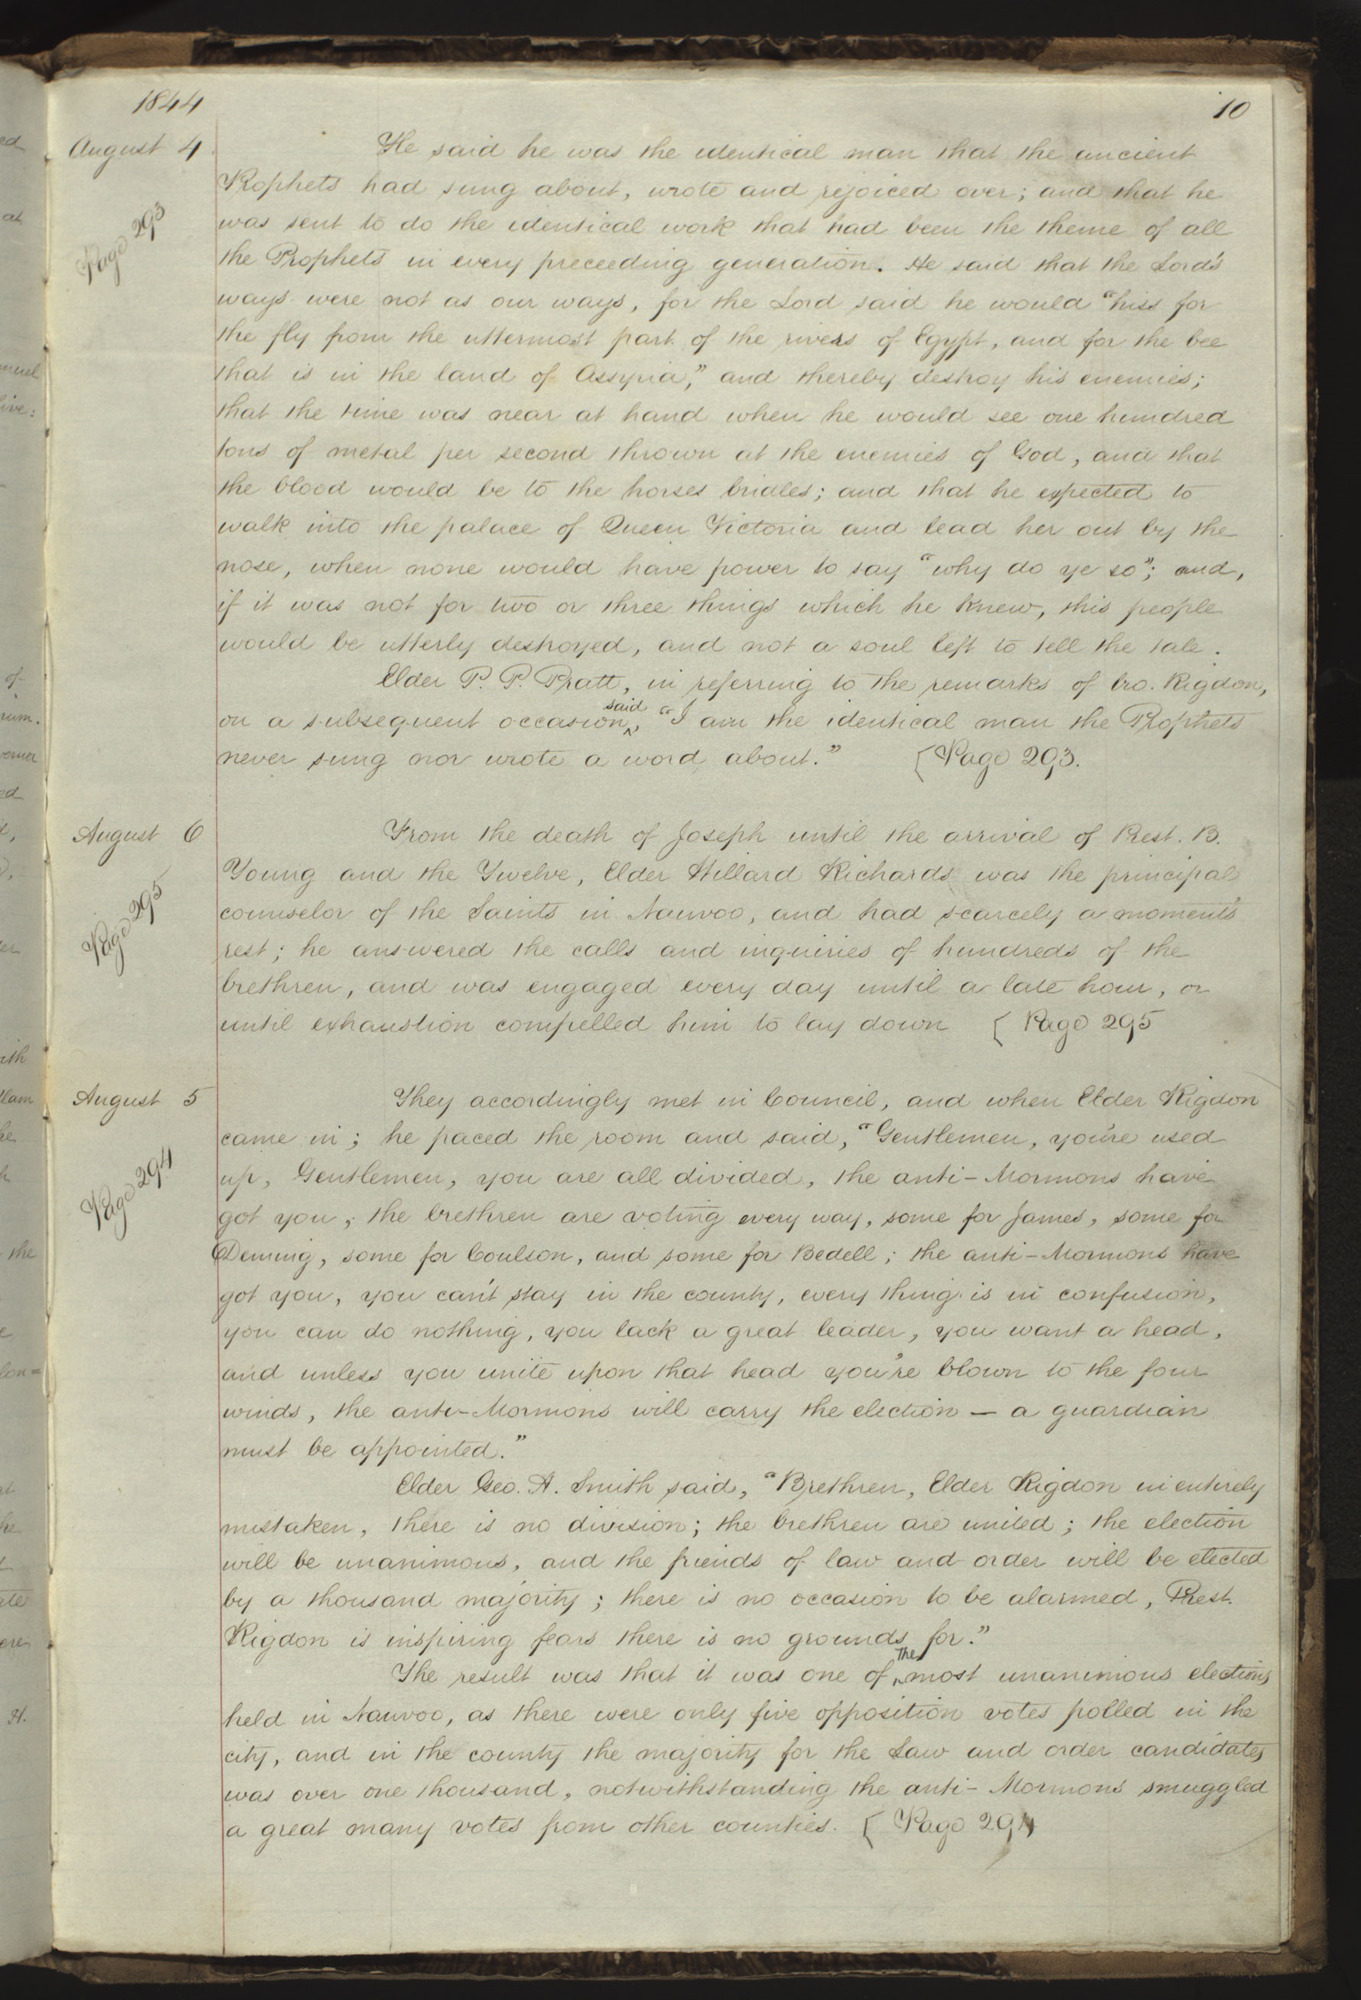 1844
10
August 4
He said he was the identical man that the ancient
Prophets had sung about, wrote and rejoiced over; and that he
Page 293
was sent to do the identical work that had been the theme of all
the Prophets in every preceeding generation. He said that the Lord's
ways were not as our ways, for the Lord said he would "hiss for
the fly from the uttermost part of the rivers of Egypt, and for the bee
that is in the land of Assyria," and thereby destroy his enemies;
that the time was near at hand when he would see one hundred
tons of metal per second thrown at the enemies of God, and that
the blood would be to the horses bridles; and that he expected to
walk into the palace of Queen Victoria and lead her out by the
nose, when none would have power to say "why do ye so"; and,
if it was not for two or three things which he knew, this people
would be utterly destroyed, and not a soul left to tell the tale.
Elder P. P. Pratt, in referring to the remarks of bro. Rigdon,
on a subsequent occasion, ^said "I am the identical man the Prophets
never sung nor wrote a word about." [Page 293.
August 6
From the death of Joseph until the arrival of Prest. B.
Young and the Twelve, Elder Willard Richards was the principal
Page 295
counselor of the Saints in Nauvoo, and had scarcely a moment's
rest; he answered the calls and inquiries of hundreds of the
brethren, and was engaged every day until a late hour, or
until exhaustion compelled him to lay down [Page 295
August 5
They accordingly met in Council, and when Elder Rigdon
came in; he paced the room and said, "Gentlemen, you're used
Page 294
up, Gentlemen, you are all divided, the anti-Mormons have
got you, the brethren are voting every way, some for James, some for
Deming, some for Coulson, and some for Bedell; the anti-Mormons have
got you, you can't stay in the county, every thing is in confusion,
you can do nothing, you lack a great leader, you want a head,
and unless you unite upon that head you're blown to the four
winds, the anti-Mormons will carry the election — a guardian
must be appointed."
Elder Geo. A. Smith said, "Brethren, Elder Rigdon in entirely
mistaken, there is no division; the brethren are united; the election
will be unanimous, and the friends of law and order will be elected
by a thousand majority; there is no occasion to be alarmed, Prest.
Rigdon is inspiring fears there is no grounds for."
The result was that it was one of ^the most unanimous elections
held in Nauvoo, as there were only five opposition votes polled in the
city, and in the county the majority for the Law and order candidates
was over one thousand, notwithstanding the anti-Mormons smuggled
a great many votes from other counties. [Page 294